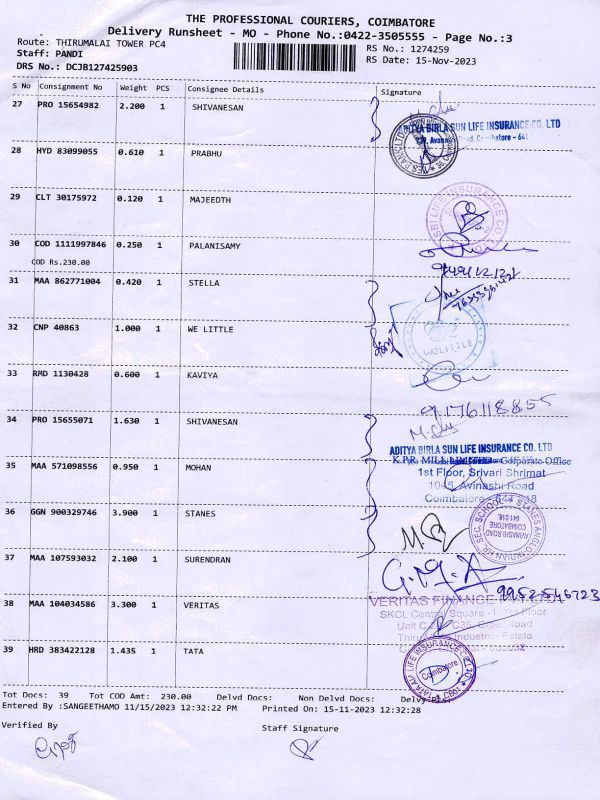 THE PROFESSIONAL COURIERS, COIMBATORE
Delivery Runsheet - MO - Phone No.:0422-3505555 - Page No.:3
Route: THIRUMALAI TOWER PC4
RS No.: 1274259
Staff: PANDI
RS Date: 15-Nov-2023
DRS No.: DCJB127425903
S No Consignment No Weight PCS Consignee Details Signature
27 PRO 15654982 2.200 1 SHIVANESAN
ADITYA BIRLA SUN LIFE INSURANCE CO. LTD
28 HYD 83099055 0.610 1 PRABHU
29 CLT 30175972 0.120 1 MAJEEDTH
SBI LIFE INSURANCE CO.
30 COD 1111997846 0.250 1 PALANISAMY
COD Rs.230.00
31 MAA 862771004 0.420 1 STELLA
32 CNP 40863 1.000 1 WE LITTLE
WELITTLE
33 RMD 1130428 0.600 1 KAVIYA
9176118855
34 PRO 15655071 1.630 1 SHIVANESAN
ADITYA BIRLA SUN LIFE INSURANCE CO. LTD
K.P.R. MILL LIMITED - Corporate Office
35 MAA 571098556 0.950 1 MOHAN
1st Floor, Srivari Shrimat
1045, Avinashi Road
Coimbatore - 641 018
36 GGN 900329746 3.900 1 STANES
STANES ANGLO INDIAN HR. SEC. SCHOOL
AVINASHI ROAD
COIMBATORE
641 018.
37 MAA 107593032 2.100 1 SURENDRAN
38 MAA 104034586 3.300 1 VERITAS
VERITAS FINANCE
39 HRD 383422128 1.435 1 TATA
TATA AIA LIFE INSURANCE CO. LTD
Coimbatore
Tot Docs: 39 Tot COD Amt: 230.00 Delvd Docs: Non Delvd Docs:
Entered By :SANGEETHAMO 11/15/2023 12:32:22 PM Printed On: 15-11-2023 12:32:28
Verified By Staff Signature